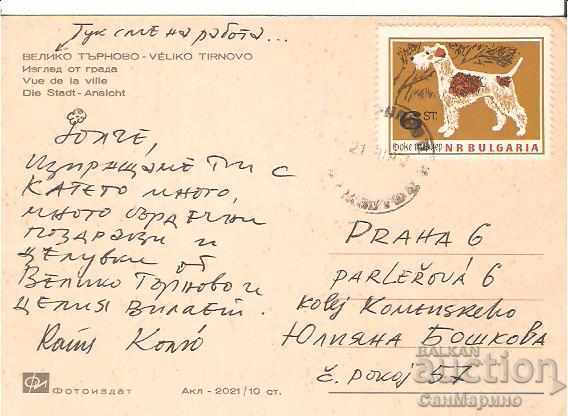 Тук сме на работа...
ВЕЛИКО ТЪРНОВО - VÉLIKO TIRNOVO
Изглед от града
Vue de la ville
Die Stadt - Ansicht
6 ST.
фокс териер
NR BULGARIA
Юлче,
изпращаме ти с
Катето много,
много сърдечни
поздрави и
целувки от
Велико Търново и
целия вилает.
PRAHA 6
PARLEŘOVÁ 6
Kolej Komenskeho
Юлияна Бошкова
č. pokoj 57
Фотоиздат
Акл - 2021/10 ст.
BALKAN
auction
СанМарино